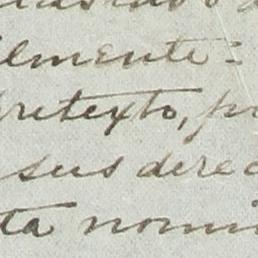 lmente=
pretexto, p
sus derec
ta nomi